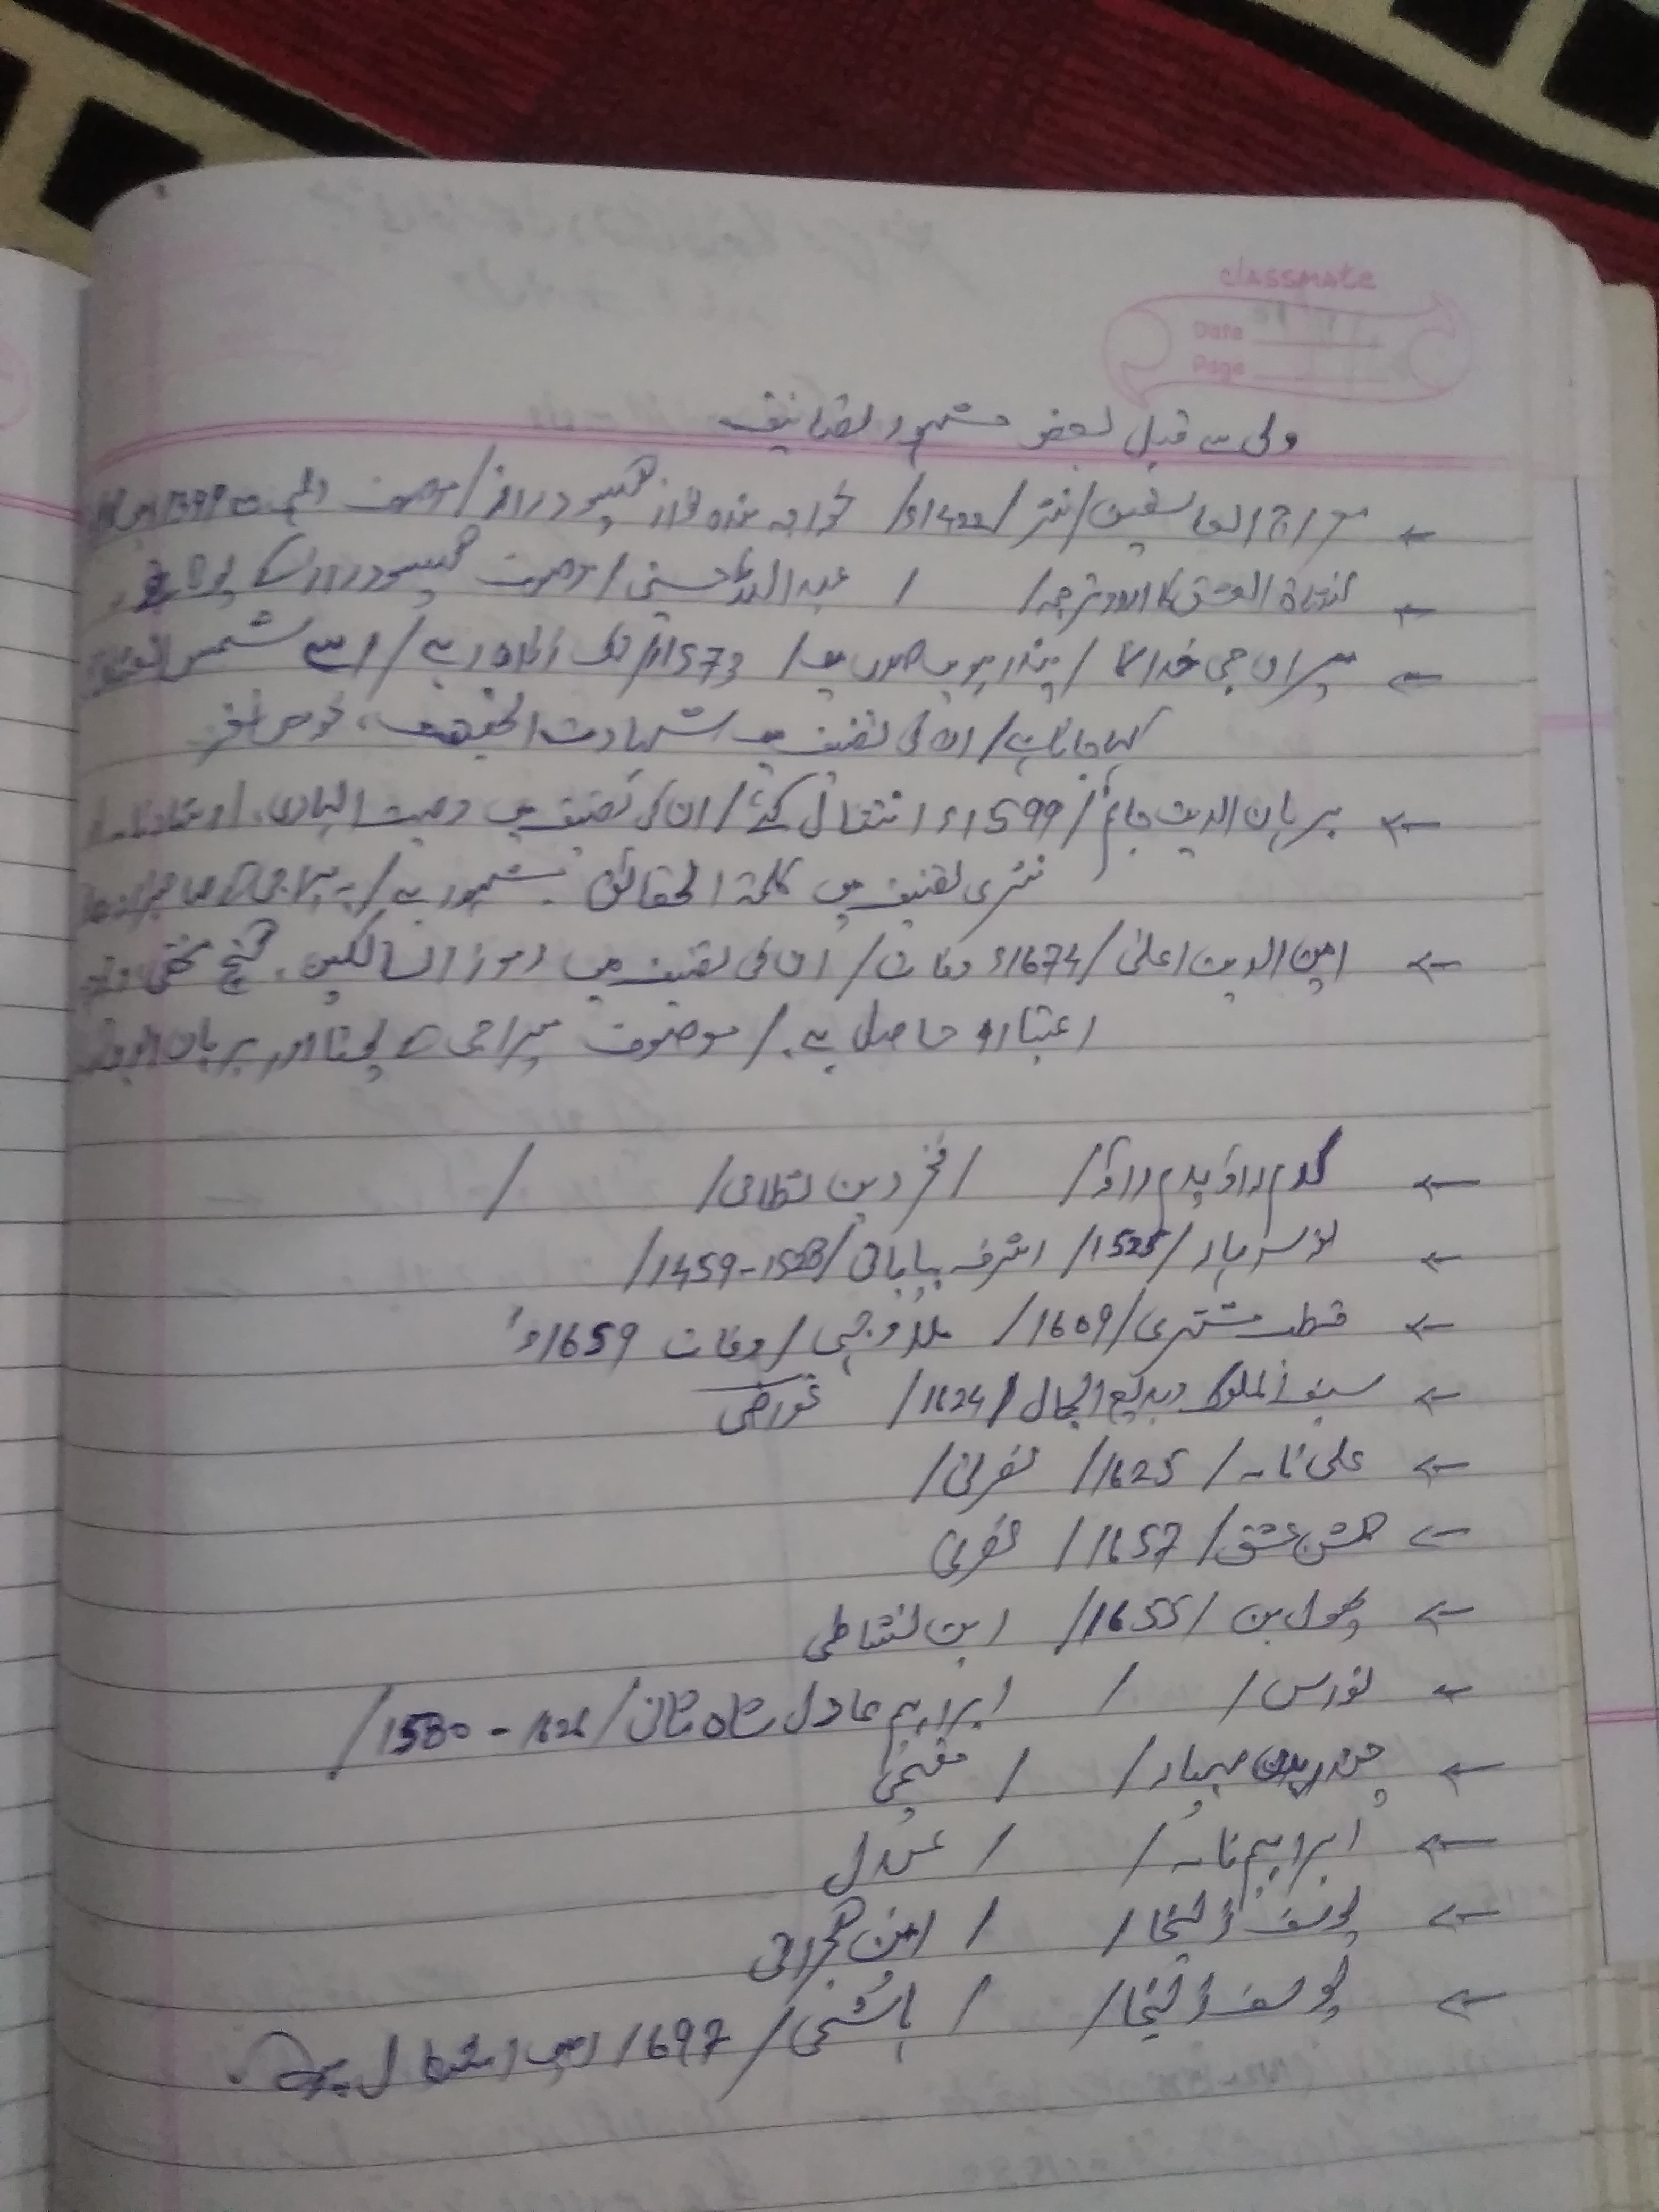 classmate
Date
Page
ولی سے قبل بعض مشہور تصانیف
معراج العاشقین/نثر/1422ء/ خواجہ بندہ نواز گیسو دراز/موصوف
نشاۃ العشق کا اردو ترجمہ/ / عبداللہ حسینی/موصوف گیسودراز کے پوتے
میراں جی خدانما/پندرہویں صدی میں/1573ء تک زندہ رہے/اسے شمس العشاق
کہا جاتا ہے/ان کی تصنیف میں شہادت الحقیقت، خوش نغز
برہان الدین جانم/1599ء انتقال کئے/ان کی تصنیف میں وصیت الہادی،
نثری تصنیف میں کلمۃ الحقائق مشہور ہے/یہ میراجی کے صاحبزادے
امین الدین اعلیٰ/1674ء وفات/ان کی تصنیف میں رموز السالکین، گنج مخفی
اعتبار حاصل ہے/موصوف میراجی کے پوتا اور برہان الدین
کدم راؤ پدم راؤ/ /فخر دین نظامی/ /
نوسرہار/1525/اشرف بیابانی/1459-1528/
قطب مشتری/1609/ ملا وجہی/وفات 1659ء
سیف الملوک و بدیع الجمال/1624/ غواصی
علی نامہ/1625/ نصرتی/
گلشن عشق/1657/ نصرتی
پھول بن/1655/ ابن نشاطی
نورس/ / ابراہیم عادل شاہ ثانی/1580-1626/
چندر بدن مہیار/ / مقیمی
ابراہیم نامہ/ / عبدل
یوسف زلیخا/ / امین گجراتی
یوسف زلیخا/ / ہاشمی/1697 میں انتقال ہوئے۔